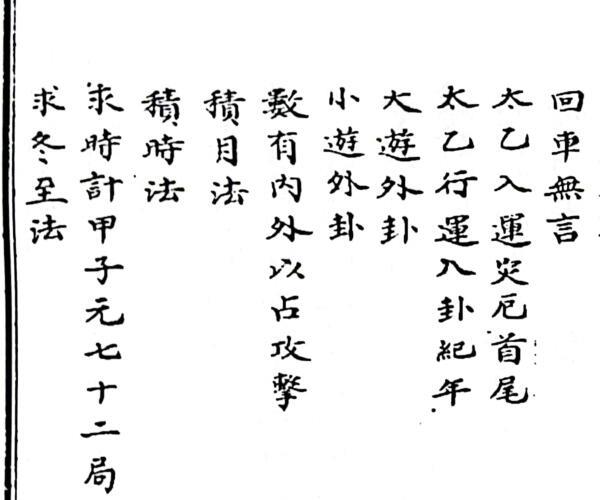 回車無言
太乙入運災厄首尾
太乙行運八卦紀年
大遊外卦
小遊外卦
數有內外以占攻擊
積日法
積時法
求時計甲子元七十二局
求冬至法